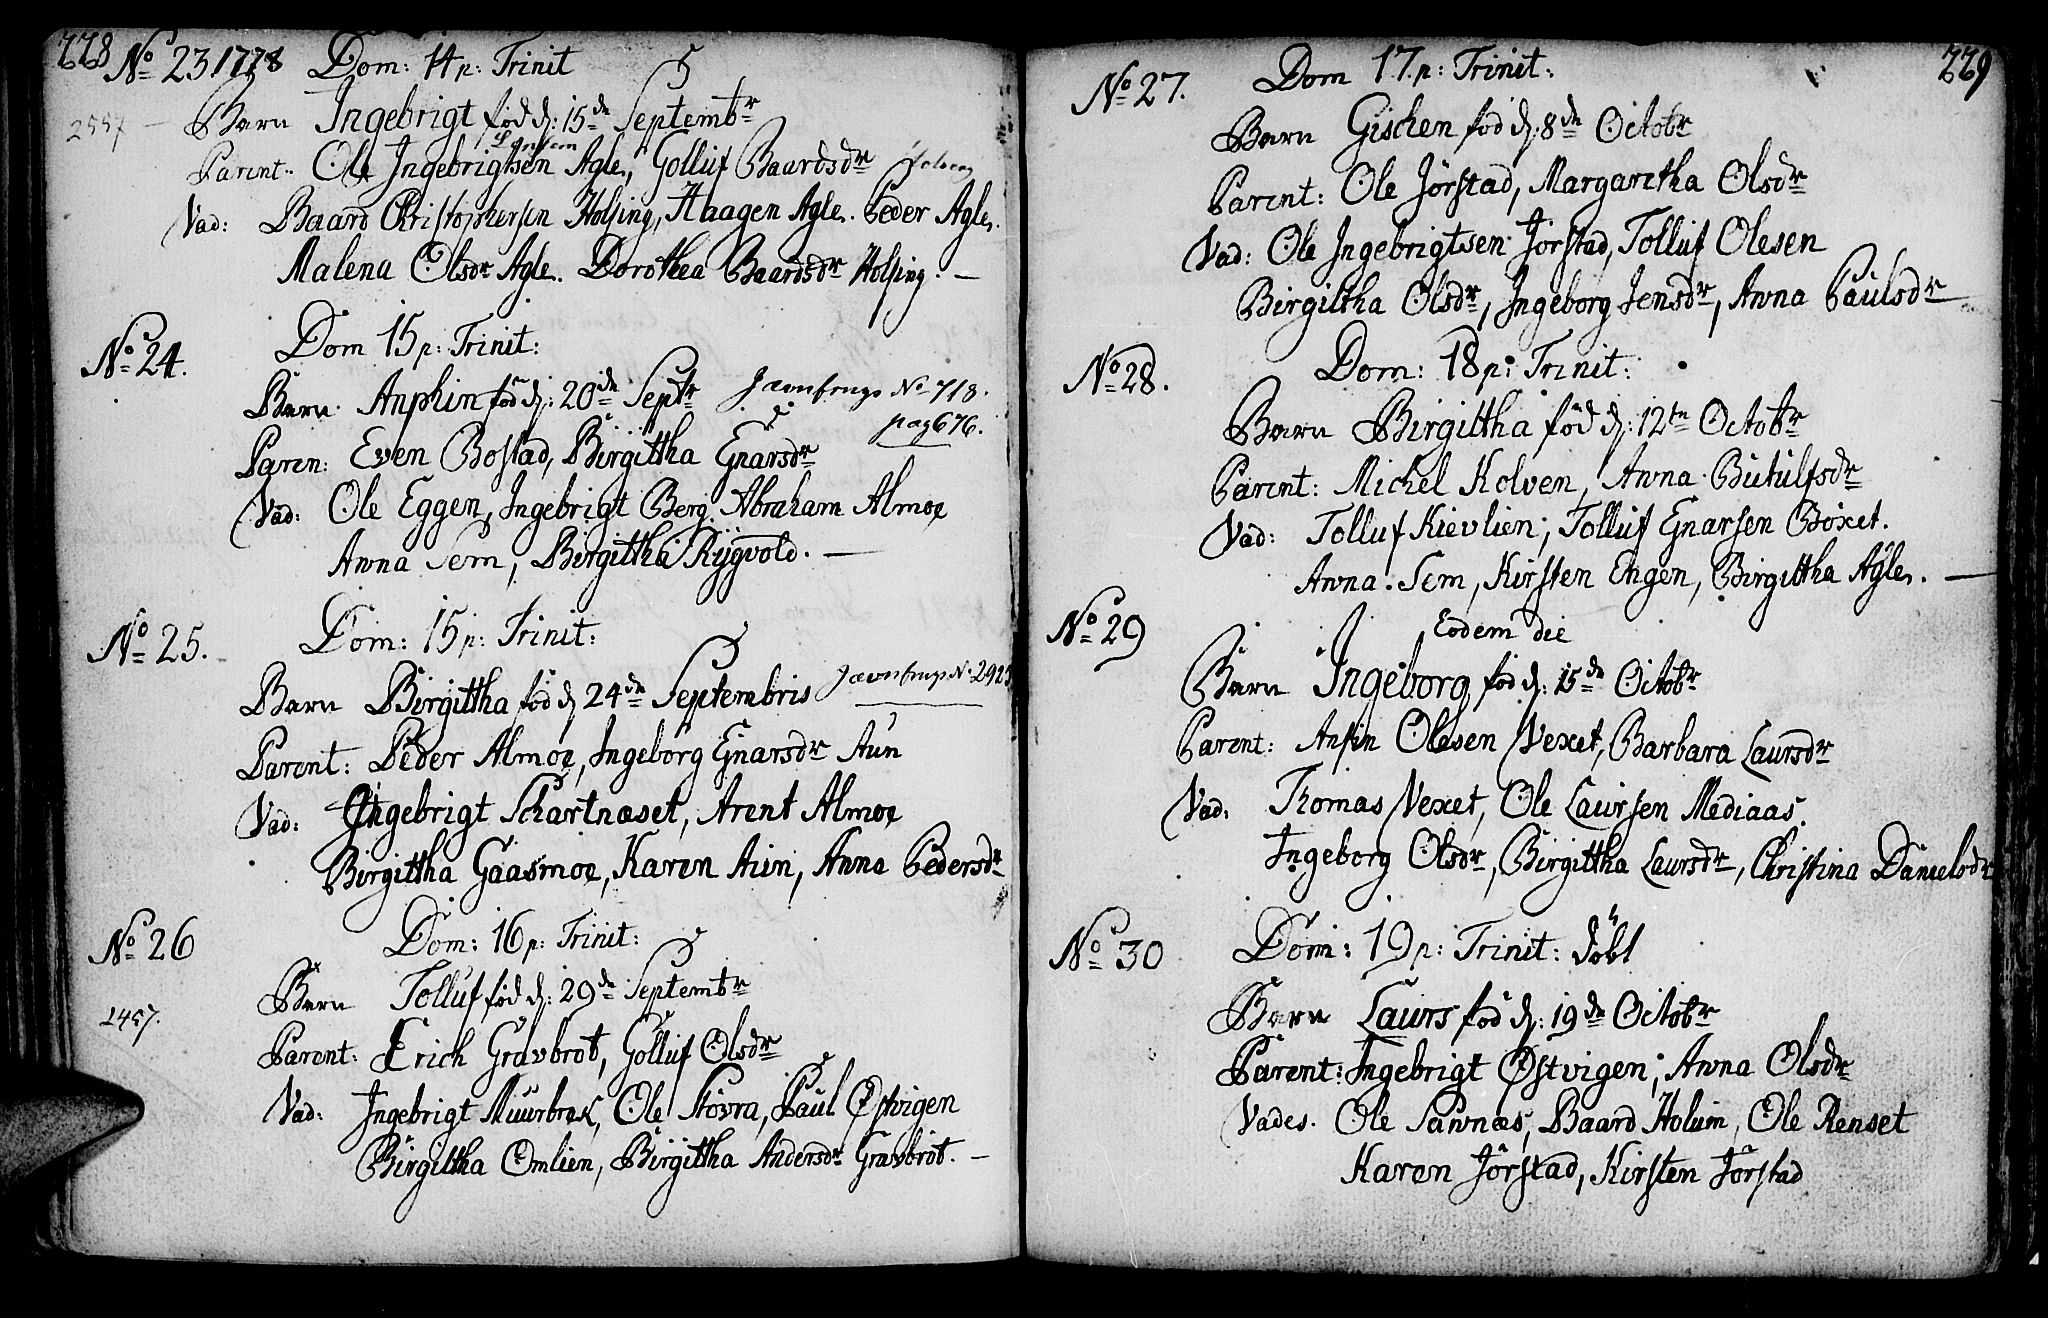 228
No 23 1778 Dom: 14 p: Trinit
2557 — Barn Ingebrigt fød d: 15de Septembr
Parent: Ole Ingebrigtsen Agle, Golluf Baardsdr
Vad: Baard Christophersen Holsing, Haagen Agle. Peder Agle.
Malena Olsdr Agle. Dorothea Baardsdr Holsing. —
No 24. Dom 15 p: Trinit:
Barn Anphin fød d: 20de Septr Jævnførings No 718.
pag 676.
Paren: Even Bostad, Birgittha Enarsdr
Vad: Ole Eggen, Ingebrigt Berg, Abraham Almoe
Anna Sem, Birgittha Rygvold. —
No 25. Dom: 15 p: Trinit:
Barn Birgittha fød d 24de Septembris
Parent: Peder Almoe, Ingeborg Enarsdr Aun
Vad: Ingebrigt Schartnæset, Arent Almoe
Birgittha Gaasmoe, Karen Aun, Anna Pedersdr
No 26 Dom: 16 p: Trinit:
Barn Tolluf fød d: 29de Septembr
2457.
Parent: Erich Gravbrøt, Golluf Olsdr
Vad: Ingebrigt Muurbræk, Ole Støvra, Paul Østvigen
Birgittha Omlien, Birgittha Andersdr Gravbrøt. —
229
No 27. Dom 17. p: Trinit:
Barn Gischen fød d: 8de Octobr
Parent: Ole Jørstad, Margaretha Olsdr
Vad: Ole Ingebrigtsen Jørstad, Tolluf Olesen
Birgittha Olsdr, Ingeborg Jensdr, Anna Paulsdr
No 28. Dom: 18 p: Trinit:
Barn Birgittha fød d: 12te Octobr
Parent: Michel Kolven, Anna Butulfsdr
Vad: Tolluf Kievlien, Tolluf Enarsen Bøxet.
Anna Sem, Kirsten Engen, Birgittha Agle. —
No 29 Eodem die
Barn Ingeborg fød d: 15de Octobr
Parent: Anfin Olesen Vexet, Barbara Laursdr
Vad: Thomas Vexet, Ole Laursen Mediaas.
Ingeborg Olsdr, Birgittha Laursdr, Christina Danielsdr
No 30 Dom: 19 p: Trinit: døbt
Barn Laurs fød d: 19de Octobr
Parent: Ingebrigt Østvigen, Anna Olsdr
Vades. Ole Savnæs, Baard Holum, Ole Renset
Karen Jørstad, Kirsten Jørstad